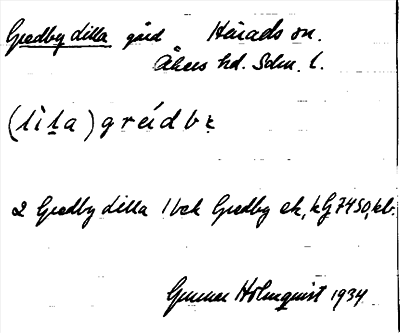 Gredby lilla gård Härads sn.
Åkers hd. Sdm. l.
(lìl̠a) greídbɩ
2 Gredby lilla 1 bek Gredby ek, kG 7450, kb.
Gunnar Holmquist 1934